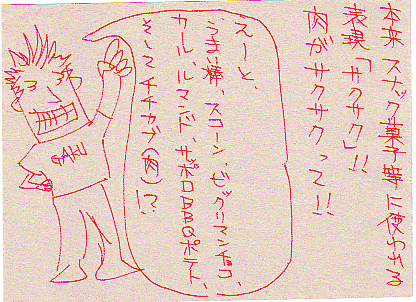 本来スナック菓子等に使われる
表現「サクサク」!!
肉がサクサクって!!
えーと、
うまい棒、スコーン、ビックリマンチョコ、
カール、ルマンド、サッポロBBQポテト、
そして チチカブ(肉)!?